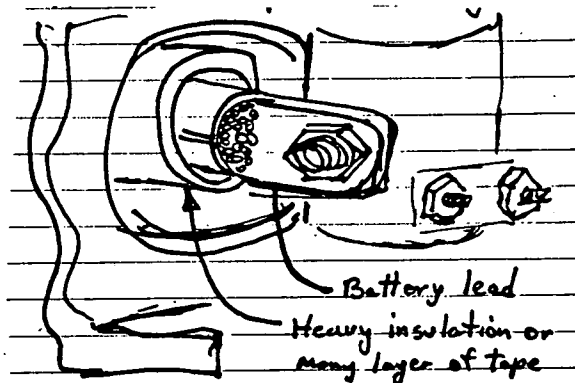 Battery lead
Heavy insulation or
many layer of tape